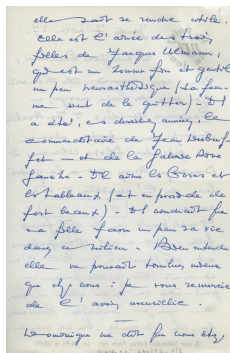 elle sait se rendre utile.
Elle est l'aînée des trois
filles de Jacques Ulmann,
qui est un homme fin et gentil
un peu neurasthénique (sa fem-
me vient de le quitter) - Il
a été, ces dernières années, le
commanditaire de Jean Dubuf-
fet — et de la Galerie Rive
Gauche - Il aime les livres et
les tableaux (et en possède de
fort beaux) - Il voudrait
sa fille fasse un peu sa vie
dans ce milieu - Bien entendu
elle ne pouvait tomber mieux
que chez vous : je vous remercie
de l'avoir accueillie.
Dominique me dit que vous êtes,